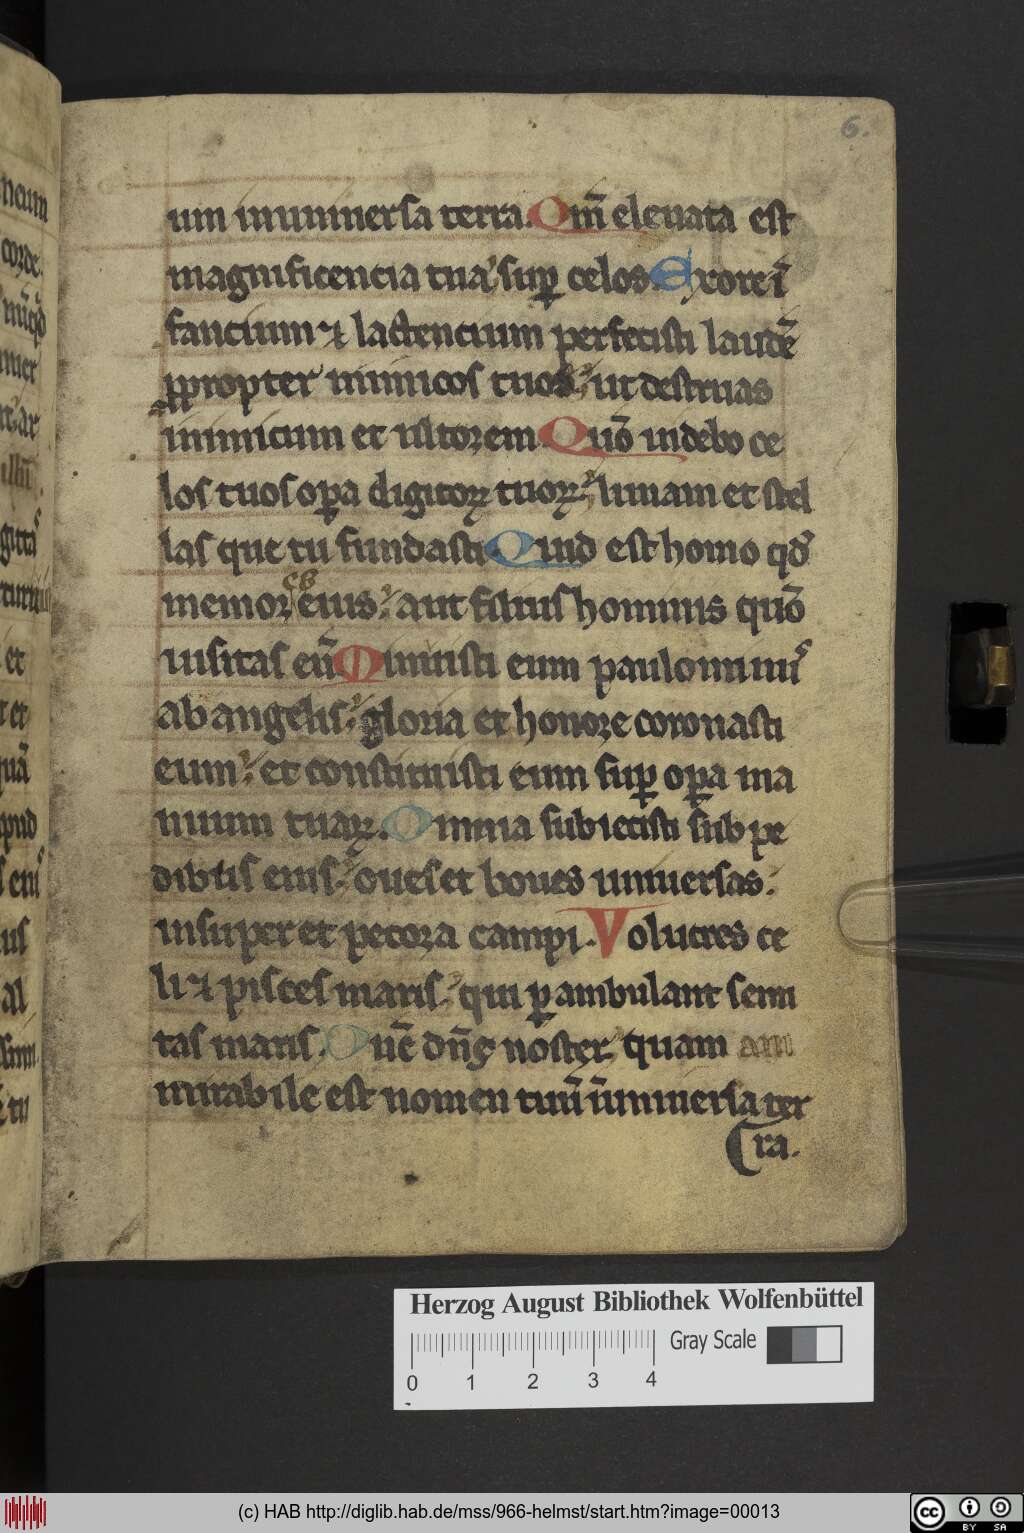 6.
um in uniuersa terra. Qm̄ eleuata est
magnificencia tua sup̱ celos. Ex ore ī
fancium ⁊ lactencium perfecisti laudē
propter inimicos tuos: ut destruas
inimicum et ultorem. Quō uidebo ce
los tuos oꝑa digitoꝝ tuoꝝ: lunam et stel
las que tu fundasti. Quid est homo qd̄
memor es eius: aut filius hominis quō
uisitas eū. Minuisti eum paulominus
ab angelis: gloria et honore coronasti
eum: et constituisti eum suꝑ oꝑa ma
nuum tuaꝝ. Omnia subiecisti sub pe
dibus eius: oues et boues uniuersas:
insuper et pecora campi. Volucres ce
li ⁊ pisces maris: qui ꝑambulant semi
tas maris. Dn̄e dn̄s noster quam
mirabile est nomen tuū ī uniuersa ter
ra.
Herzog August Bibliothek Wolfenbüttel
Gray Scale
0 1 2 3 4
(c) HAB http://diglib.hab.de/mss/966-helmst/start.htm?image=00013
cc BY SA